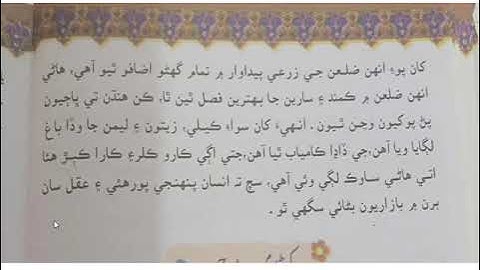 کان پوءِ انهن ضلعن جي زرعي پيداوار ۾ تمام گهڻو اضافو ٿيو آهي، هاڻي
انهن ضلعن ۾ ڪمند ۽ سارين جا بهترين فصل ٿين ٿا. ڪن هنڌن تي ڀاڄيون
پڻ پوکيون وڃن ٿيون. انهيءَ کان سواءِ ڪيلي، زيتون ۽ ليمن جا وڏا باغ
لڳايا ويا آهن، جي ڏاڍا ڪامياب ٿيا آهن، جتي اڳي ڪارو ڪلر ۽ ڪارا ڪٻڙ هئا
اتي هاڻي ساوڪ لڳي وئي آهي، سچ ته انسان پنهنجي پورهئي ۽ عقل سان
برن ۾ بازاريون بڻائي سگهي ٿو.